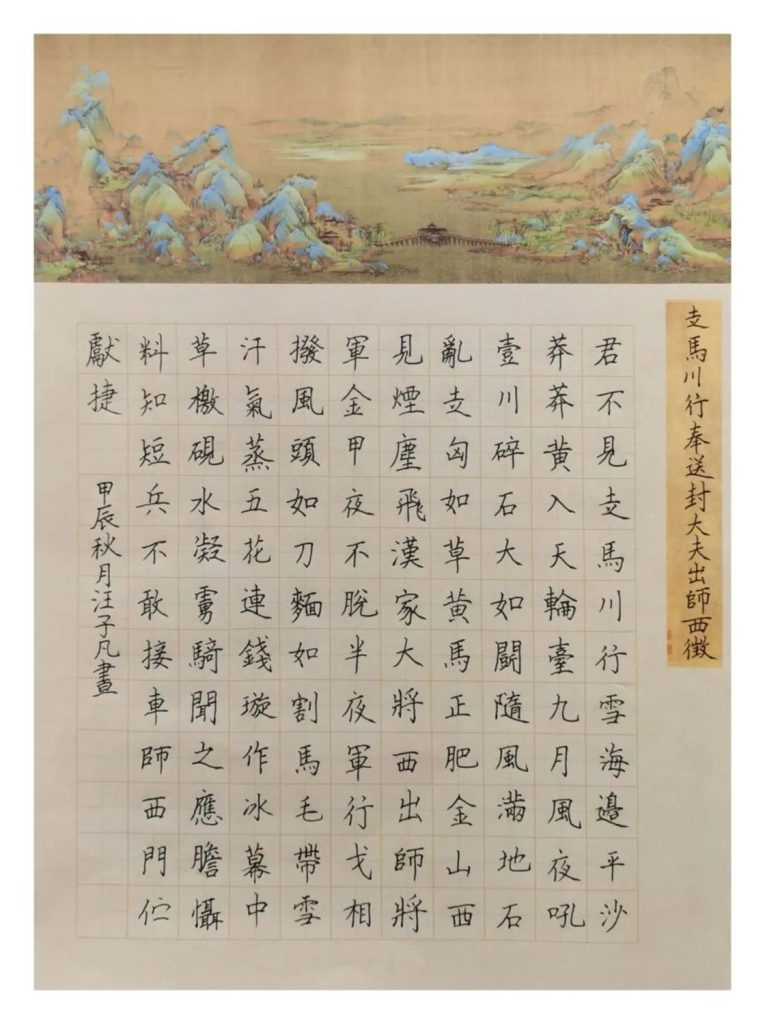 走馬川行奉送封大夫出師西徵
君不見走馬川行雪海邊平沙
莽莽黄入天輪臺九月風夜吼
壹川碎石大如闘隨風滿地石
亂走匈如草黄馬正肥金山西
見煙塵飛漢家大將西出師將
軍金甲夜不脫半夜軍行戈相
撥風頭如刀麵如割馬毛帶雪
汗氣蒸五花連錢璇作冰幕中
草檄硯水凝虜騎聞之應膽懾
料知短兵不敢接車師西門伫
獻捷
甲辰秋月汪子凡書